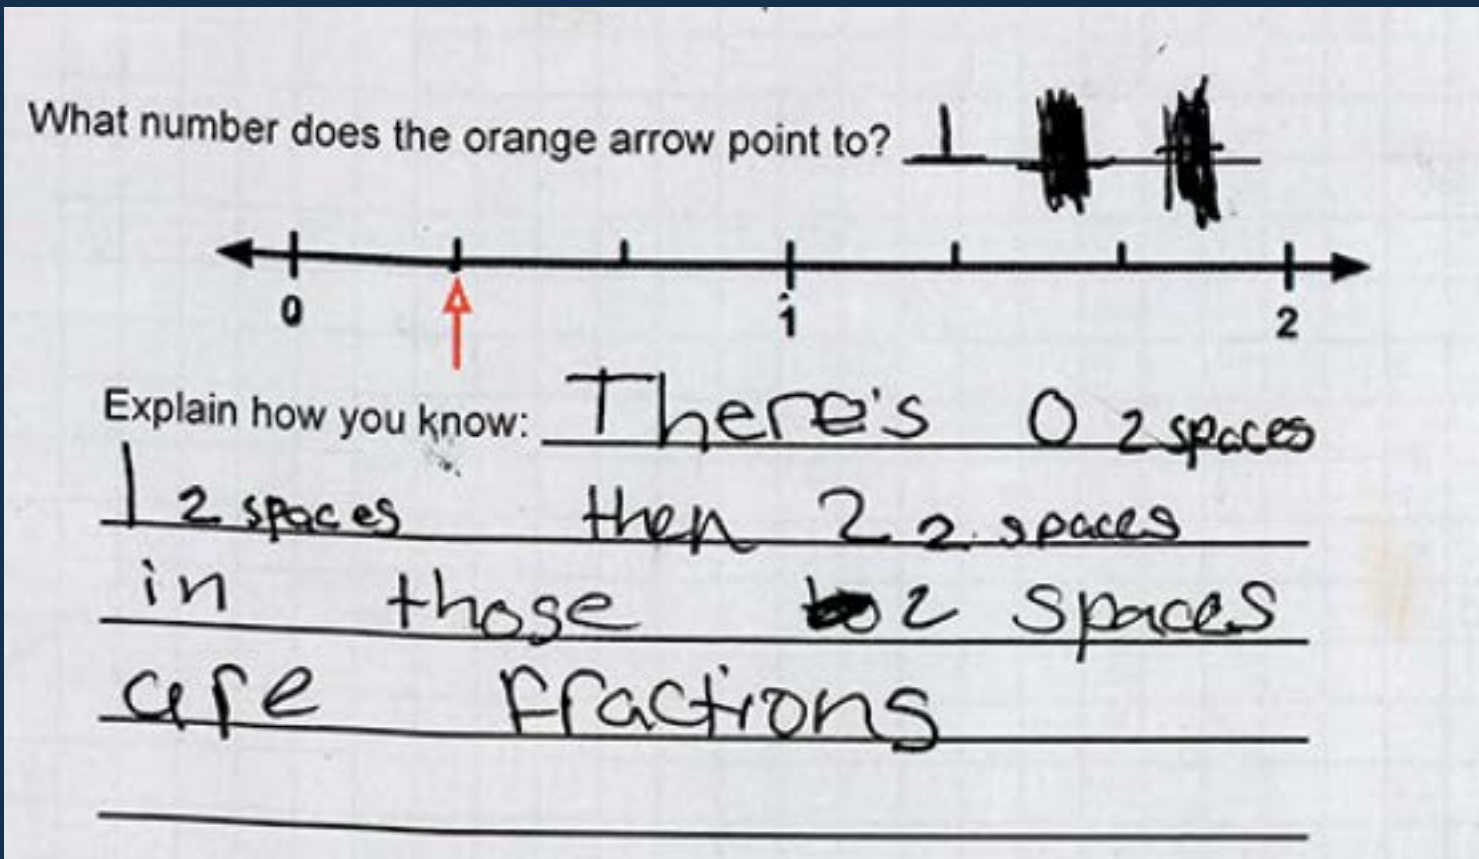 What number does the orange arrow point to? 1
0 1 2
Explain how you know: There's 0 2 spaces
1 2 spaces then 2 2 spaces
in those 2 spaces
are fractions